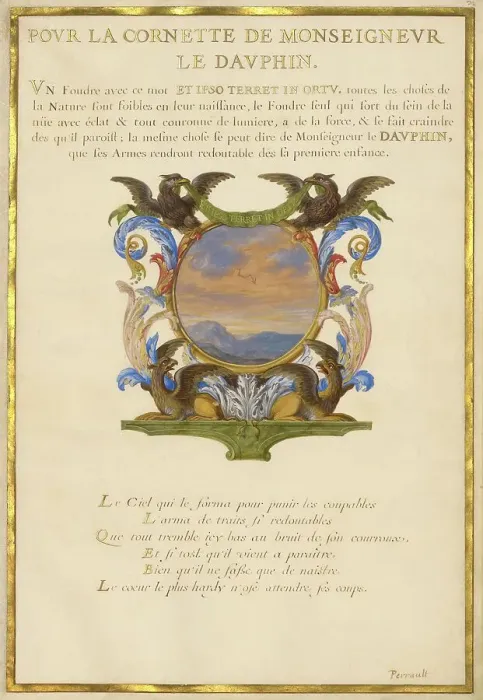 POVR LA CORNETTE DE MONSEIGNEVR
LE DAVPHIN.
VN Foudre avec ce mot ET IPSO TERRET IN ORTV. toutes les choses de
la Nature sont foibles en leur naissance, le Foudre seul qui sort du sein de la
nüe avec éclat & tout couronne de lumiere, a de la force, & se fait craindre
des qu'il paroist; la mesme chose se peut dire de Monseigneur le DAVPHIN,
que ses Armes rendront redoutable dés sa premiere enfance.
IPSO TERRET IN
Le Ciel qui le forma pour punir les coupables
L'arma de traits si redoutables
Que tout tremble icy bas au bruit de son courroux,
Et si tost qu'il vient a paraître,
Bien qu'il ne fasse que de naître,
Le coeur le plus hardy n'ose attendre ses coups.
Perrault